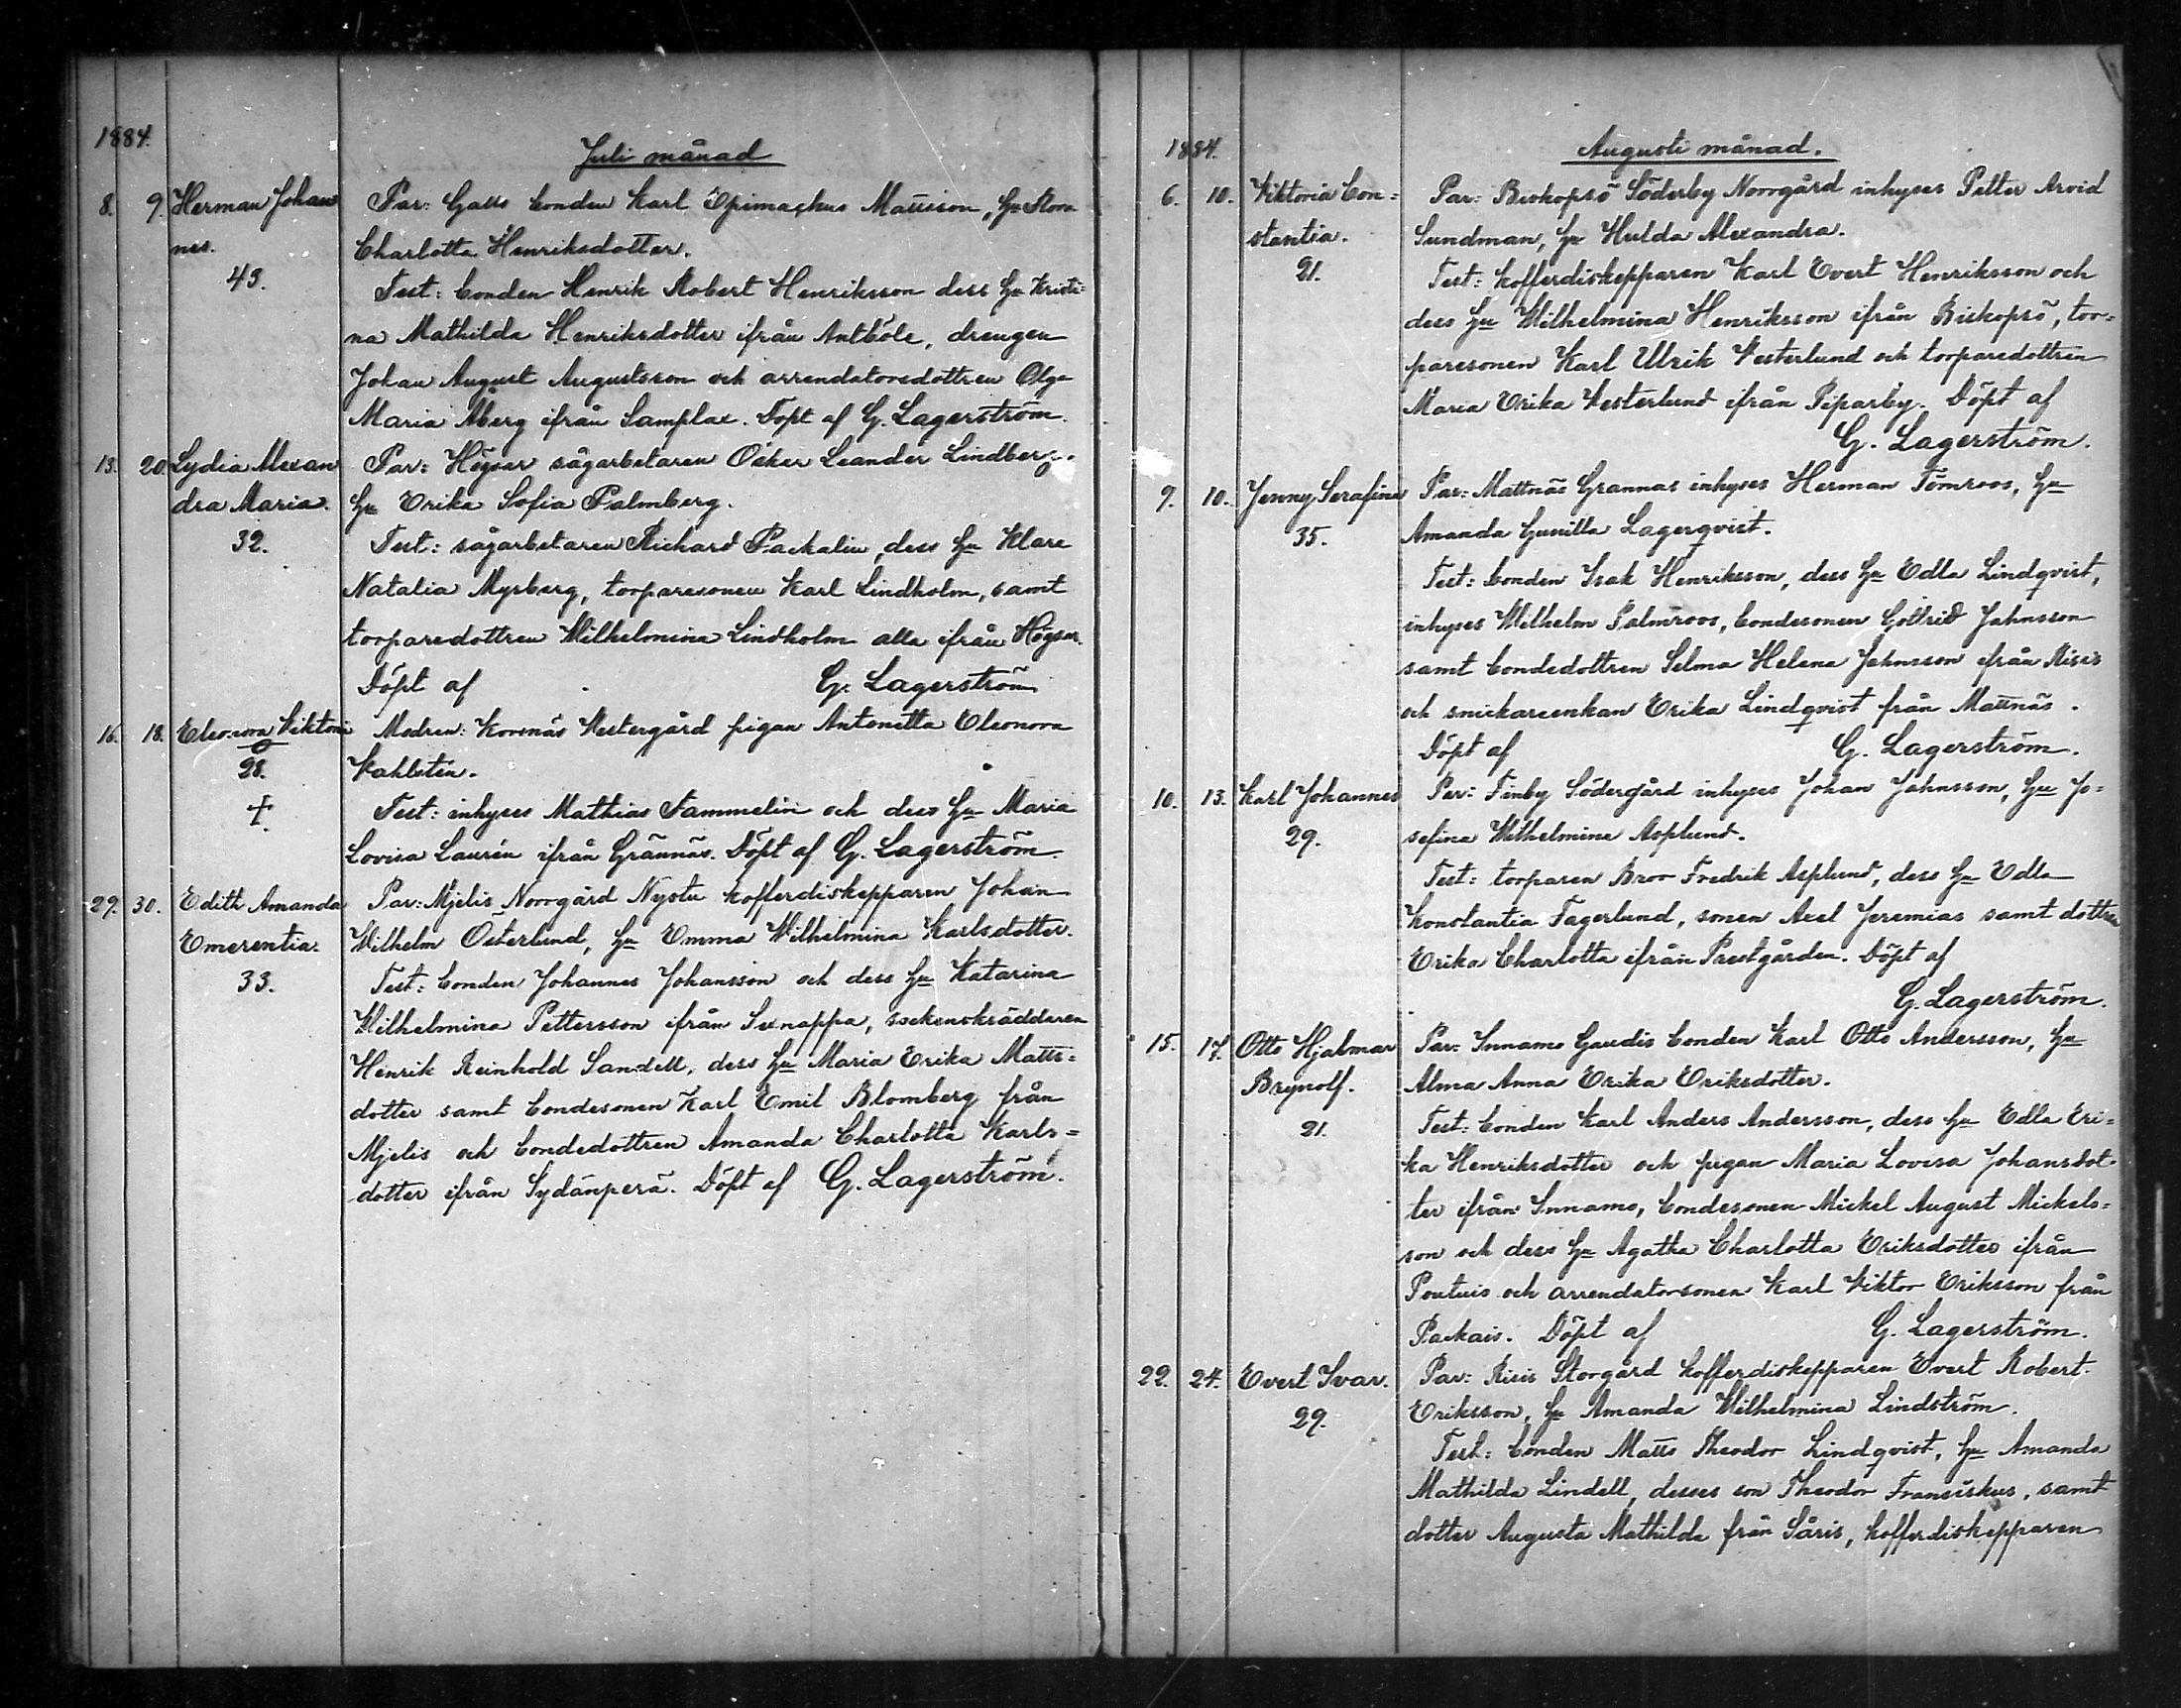 1884.
Juli månad
8. 9. Herman Johan Par: Galls bonden Karl Epimachus Mattsson, Hu
nes. Charlotta Henriksdotter.
43. Test: bonden Henrik Robert Henriksson dess Hu Kristi
na Mathilda Henriksdotter ifrån Antböle, drengen
Johan August Augustsson och arrendatorsdottren Olga
Maria Åberg ifrån Samplax. Döpt af G. Lagerström.
13. 20. Lydia Alexan Par: Högsar sågarbetaren Oskar Leander Lindberg.
dra Maria. Hu Erika Sofia Palmberg.
32. Test: sågarbetaren Richard Packalin, dess Hu Klara
Natalia Myrberg, torparesonen Karl Lindholm, samt
torparedottren Wilhelmina Lindholm alla ifrån Högsar.
Döpt af G. Lagerström
16. 18. Eleonora Viktoria Modren: Kornnäs Westergård pigan Antonetta Eleonora
28. Kahlstén.
+ Test: inhyses Mathias Tammelin och dess Hu Maria
Lovisa Laurén ifrån Grännäs. Döpt af G. Lagerström.
29. 30. Edith Amanda Par: Mjelis Norrgård Nystu kofferdiskepparen Johan
Emerentia. Wilhelm Österlund, Hu Emma Wilhelmina Karlsdotter.
33. Test: bonden Johannes Johansson och dess Hu Katarina
Wilhelmina Pettersson ifrån Sexnappa, sockenskräddaren
Henrik Reinhold Sandell, dess Hu Maria Erika Matts=
dotter samt bondesonen Karl Emil Blomberg från
Mjelis och bondedottren Amanda Charlotta Karls=
dotter ifrån Sydänperä. Döpt af G. Lagerström.
1884.
Augusti månad.
6. 10. Viktoria Con= Par: Biskopsö Söderby Norrgård inhyses Petter Arvid
stantia. Sundman, Hu Hulda Alexandra.
21. Test: kofferdiskepparen Karl Evert Henriksson och
dess Hu Wilhelmina Henriksson ifrån Biskopsö, tor=
paresonen Karl Ulrik Vesterlund och torparedottren
Maria Erika Vesterlund ifrån Piparby. Döpt af
G. Lagerström.
9. 10. Jenny Serafina Par: Mattnäs Grannas inhyses Herman Tömroos, Hu
35. Amanda Gunilla Lagerqvist.
Test: bonden Isak Henriksson, dess Hu Edla Lindqvist,
inhyses Wilhelm Palmroos, bondesonen Gottfrid Jahnsson
samt bondedottren Selma Helena Jahnsson ifrån
och snickareenkan Erika Lindqvist från Mattnäs.
Döpt af G. Lagerström.
10. 13. Karl Johannes Par: Finby Södergård inhyses Johan Jahnsson, Hu Jo=
29. sefina Wilhelmina Asplund.
Test: torparen Bror Fredrik Asplund, dess Hu Edla
Konstantia Fagerlund, sonen Axel Jeremias samt dottren
Erika Charlotta ifrån Prestgården. Döpt af
G. Lagerström.
15. 17. Otto Hjalmar Par: Innamo Gaudis bonden Karl Otto Andersson, Hu
Brynolf. Alma Anna Erika Eriksdotter.
21. Test: bonden Karl Anders Andersson, dess Hu Edla Eri=
ka Henriksdotter och pigan Maria Lovisa Johansdot=
ter ifrån Innamo, bondesonen Mickel August Mickels=
son och dess Hu Agatha Charlotta Eriksdotter ifrån
Pontuis och arrendatorsonen Karl Viktor Eriksson från
Packais. Döpt af G. Lagerström.
22. 24. Evert Ivar. Par: Risis Storgård kofferdiskepparen Evert Robert
29. Eriksson, Hu Amanda Wilhelmina Lindström.
Test: bonden Matts Theodor Lindqvist, Hu Amanda
Mathilda Lindell, desses son Theodor Fransiskus, samt
dotter Augusta Mathilda från Såris, kofferdiskepparen